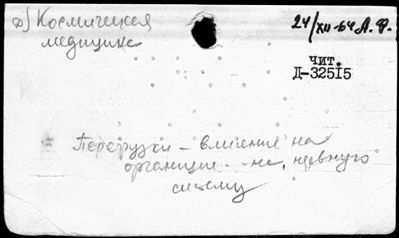 д) Космическая
медицина
24/XII-64 А. Ф.
чит.
Д-32515
Перегрузки - влияние на
организм - на нервную
систему